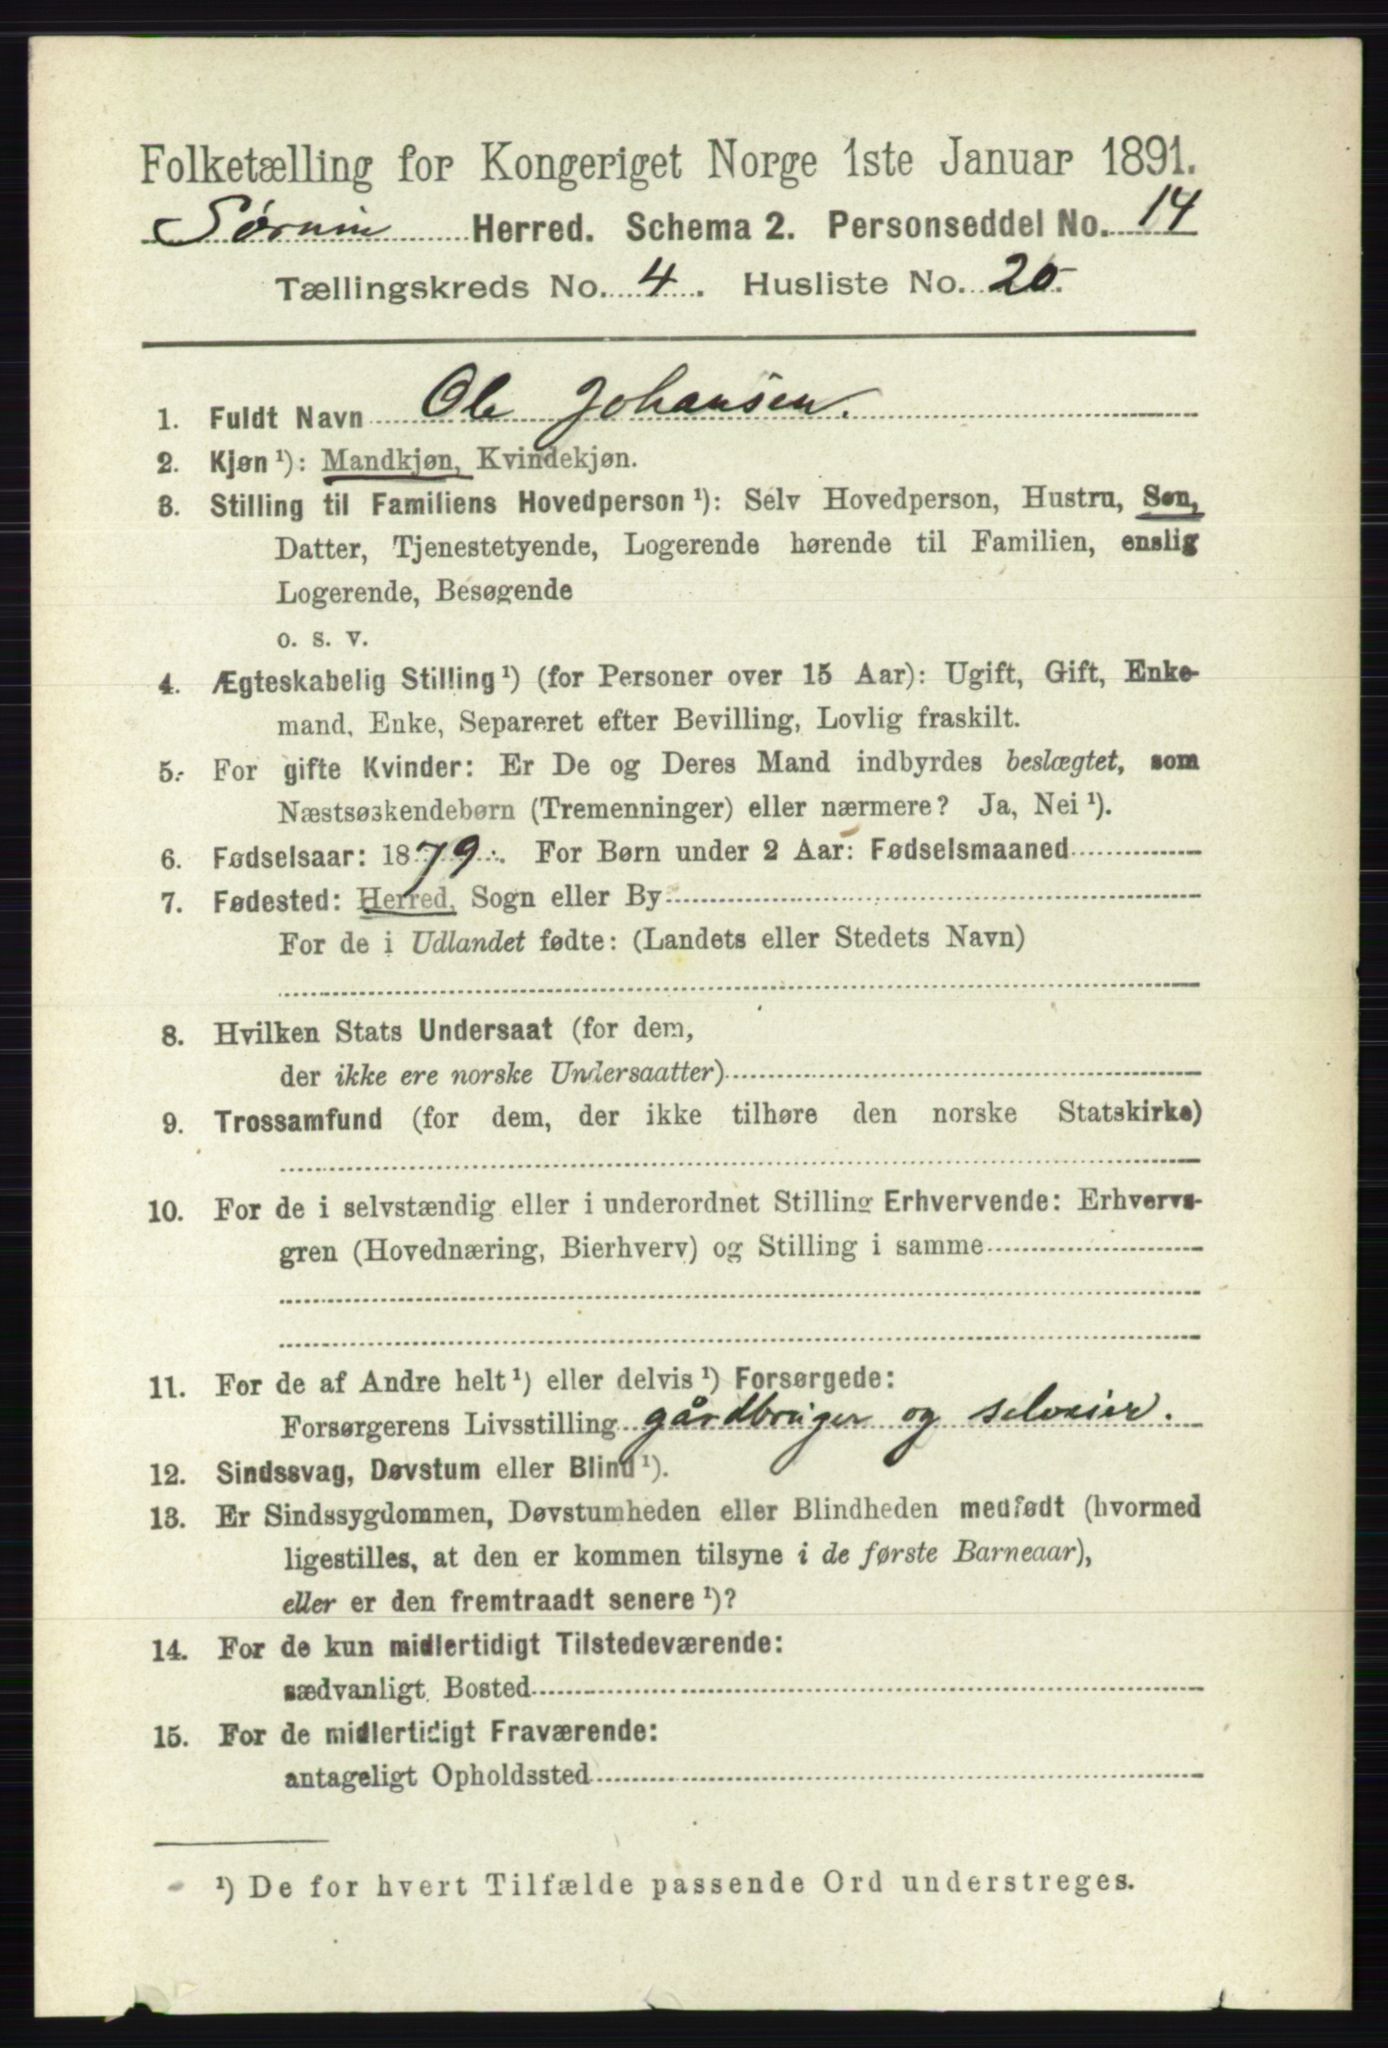 Folketælling for Kongeriget Norge 1ste Januar 1891.
Sørum Herred. Schema 2. Personseddel No. 14
Tællingskreds No. 4. Husliste No. 20.
1. Fuldt Navn Ole Johansen.
2. Kjøn ¹): Mandkjøn, Kvindekjøn.
3. Stilling til Familiens Hovedperson ¹): Selv Hovedperson, Hustru, Søn,
Datter, Tjenestetyende, Logerende hørende til Familien, enslig
Logerende, Besøgende
o. s. v.
4. Ægteskabelig Stilling ¹) (for Personer over 15 Aar): Ugift, Gift, Enke-
mand, Enke, Separeret efter Bevilling, Lovlig fraskilt.
5. For gifte Kvinder: Er De og Deres Mand indbyrdes beslægtet, som
Næstsøskendebørn (Tremenninger) eller nærmere? Ja, Nei ¹).
6. Fødselsaar: 1879. For Børn under 2 Aar: Fødselsmaaned
7. Fødested: Herred, Sogn eller By
For de i Udlandet fødte: (Landets eller Stedets Navn)
8. Hvilken Stats Undersaat (for dem,
der ikke ere norske Undersaatter)
9. Trossamfund (for dem, der ikke tilhøre den norske Statskirke)
10. For de i selvstændig eller i underordnet Stilling Erhvervende: Erhvervs-
gren (Hovednæring, Bierhverv) og Stilling i samme
11. For de af Andre helt ¹) eller delvis ¹) Forsørgede:
Forsørgerens Livsstilling gårdbruger og selveier.
12. Sindssvag, Døvstum eller Blind ¹).
13. Er Sindssygdommen, Døvstumheden eller Blindheden medfødt (hvormed
ligestilles, at den er kommen tilsyne i de første Barneaar),
eller er den fremtraadt senere ¹)?
14. For de kun midlertidigt Tilstedeværende:
sædvanligt Bosted
15. For de midlertidigt Fraværende:
antageligt Opholdssted
¹) De for hvert Tilfælde passende Ord understreges.